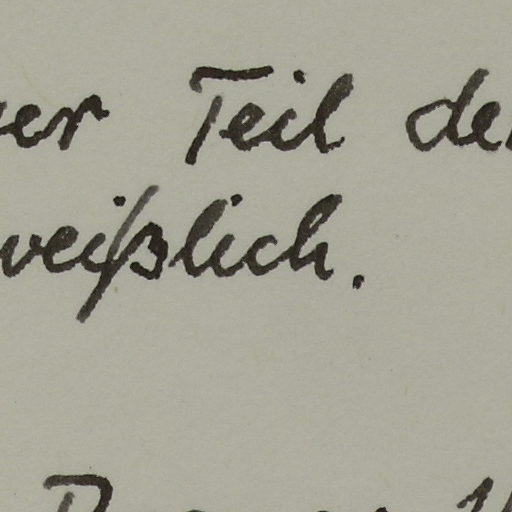 er Teil de
weißlich.